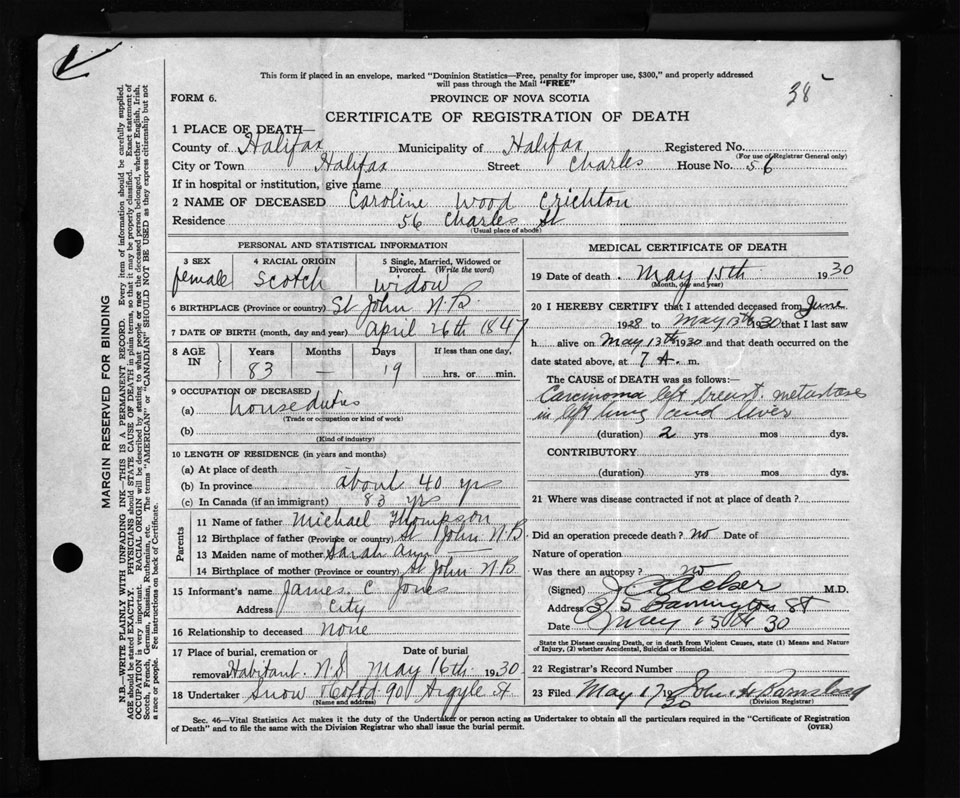 This form if placed in an envelope, marked "Dominion Statistics—Free, penalty for improper use, $300," and properly addressed
will pass through the Mail "FREE"
38
FORM 6.
PROVINCE OF NOVA SCOTIA
CERTIFICATE OF REGISTRATION OF DEATH
MARGIN RESERVED FOR BINDING
N.B.—WRITE PLAINLY WITH UNFADING INK—THIS IS A PERMANENT RECORD. Every item of information should be carefully supplied.
AGE should be stated EXACTLY. PHYSICIANS should STATE CAUSE OF DEATH in plain terms, so that it may be properly classified. Exact statement of
OCCUPATION is very important. RACIAL ORIGIN will be described by stating to what people or race the deceased person belonged, whether English, Irish,
Scotch, French, German, Russian, Ruthenian, etc. The terms "AMERICAN" or "CANADIAN" SHOULD NOT BE USED as they express citizenship but not
a race or people. See instructions on back of Certificate.
1 PLACE OF DEATH—
County of Halifax Municipality of Halifax Registered No.
(For use of Registrar General only)
City or Town Halifax Street Charles House No. 56
If in hospital or institution, give name
2 NAME OF DECEASED Caroline Wood Crichton
Residence 56 Charles St
(Usual place of abode)
PERSONAL AND STATISTICAL INFORMATION
3 SEX 4 RACIAL ORIGIN 5 Single, Married, Widowed or
Divorced. (Write the word)
female Scotch widow
6 BIRTHPLACE (Province or country) St John N.B.
7 DATE OF BIRTH (month, day and year) April 26th 1847
8 AGE IN Years Months Days If less than one day,
83 — 19 hrs. or min.
9 OCCUPATION OF DECEASED
(a) house duties
(Trade or occupation or kind of work)
(b)
(Kind of industry)
10 LENGTH OF RESIDENCE (in years and months)
(a) At place of death
(b) In province about 40 yrs
(c) In Canada (if an immigrant) 83 yrs
Parents
11 Name of father Michael Thompson
12 Birthplace of father (Province or country) St John N.B.
13 Maiden name of mother Sarah Ann —
14 Birthplace of mother (Province or country) St John N.B
15 Informant's name James C Jones
Address City
16 Relationship to deceased none
17 Place of burial, cremation or Date of burial
removal Habitant. N.S May 16th 1930
18 Undertaker Snow & Co Ltd 90 Argyle St
(Name and address)
MEDICAL CERTIFICATE OF DEATH
19 Date of death May 15th 1930
(Month, day and year)
20 I HEREBY CERTIFY that I attended deceased from June
1928 to May 13th 1930 that I last saw
h alive on May 13th 1930 and that death occurred on the
date stated above, at 7 A. m.
The CAUSE of DEATH was as follows:—
Carcinoma left breast. metastases
in left lung and liver
(duration) 2 yrs mos dys.
CONTRIBUTORY
(duration) yrs mos dys.
21 Where was disease contracted if not at place of death?
Did an operation precede death? no Date of
Nature of operation
Was there an autopsy? no
(Signed) M.D.
Address Barrington St
Date May 15th 30
State the Disease causing Death, or in death from Violent Causes, state (1) Means and Nature
of Injury, (2) whether Accidental, Suicidal or Homicidal.
22 Registrar's Record Number
23 Filed May 17 1930 John H
(Division Registrar)
Sec. 46—Vital Statistics Act makes it the duty of the Undertaker or person acting as Undertaker to obtain all the particulars required in the "Certificate of Registration
of Death" and to file the same with the Division Registrar who shall issue the burial permit. (OVER)